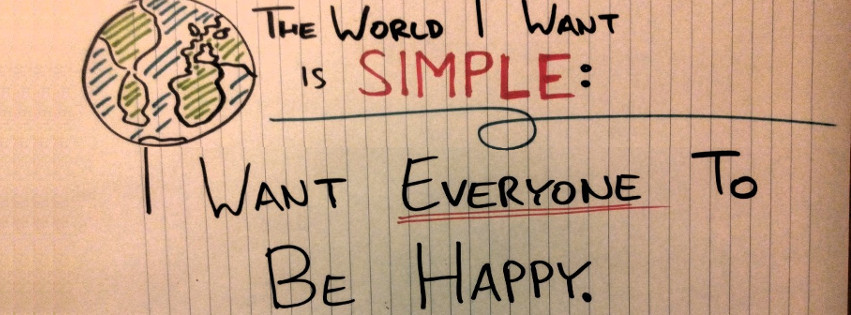 THE WORLD I WANT
IS SIMPLE:
I WANT EVERYONE TO
BE HAPPY.